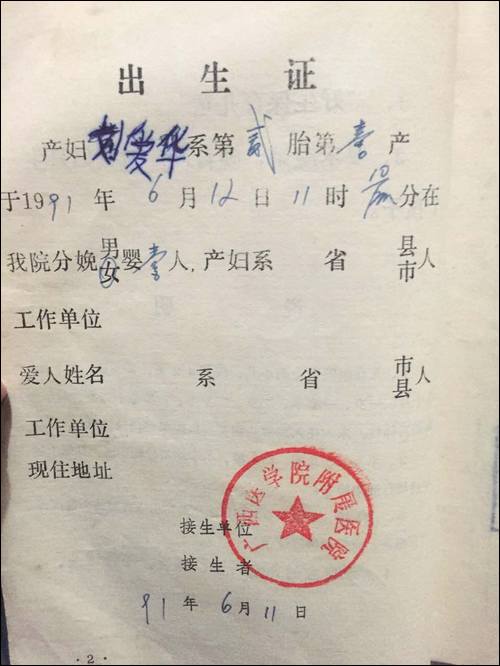 出生证
产妇 爱华系第贰胎第壹产
于1991年6月12日11时 分在
我院分娩男女婴壹人,产妇系 省 县市人
工作单位
爱人姓名 系 省 市县人
工作单位
现住地址
广西医学院附属医院
接生单位
接生者
91年6月11日
·2·